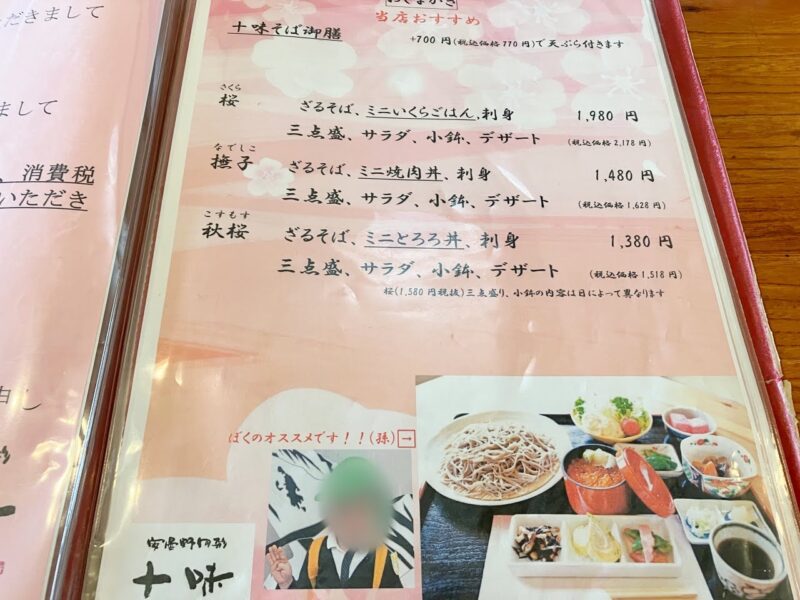 だきまして
まして
、消費税
いただき
おしながき
当店おすすめ
十味そば御膳
+700円(税込価格770円)で天ぷら付きます
さくら
桜 ざるそば、ミニいくらごはん、刺身 1,980 円
三点盛、サラダ、小鉢、デザート (税込価格2,178円)
なでしこ
撫子 ざるそば、ミニ焼肉丼、刺身 1,480 円
三点盛、サラダ、小鉢、デザート (税込価格1,628円)
こすもす
秋桜 ざるそば、ミニとろろ丼、刺身 1,380 円
三点盛、サラダ、小鉢、デザート (税込価格1,518円)
桜(1,580円税抜)三点盛り、小鉢の内容は日によって異なります
ぼくのオススメです!!(孫)→
十味